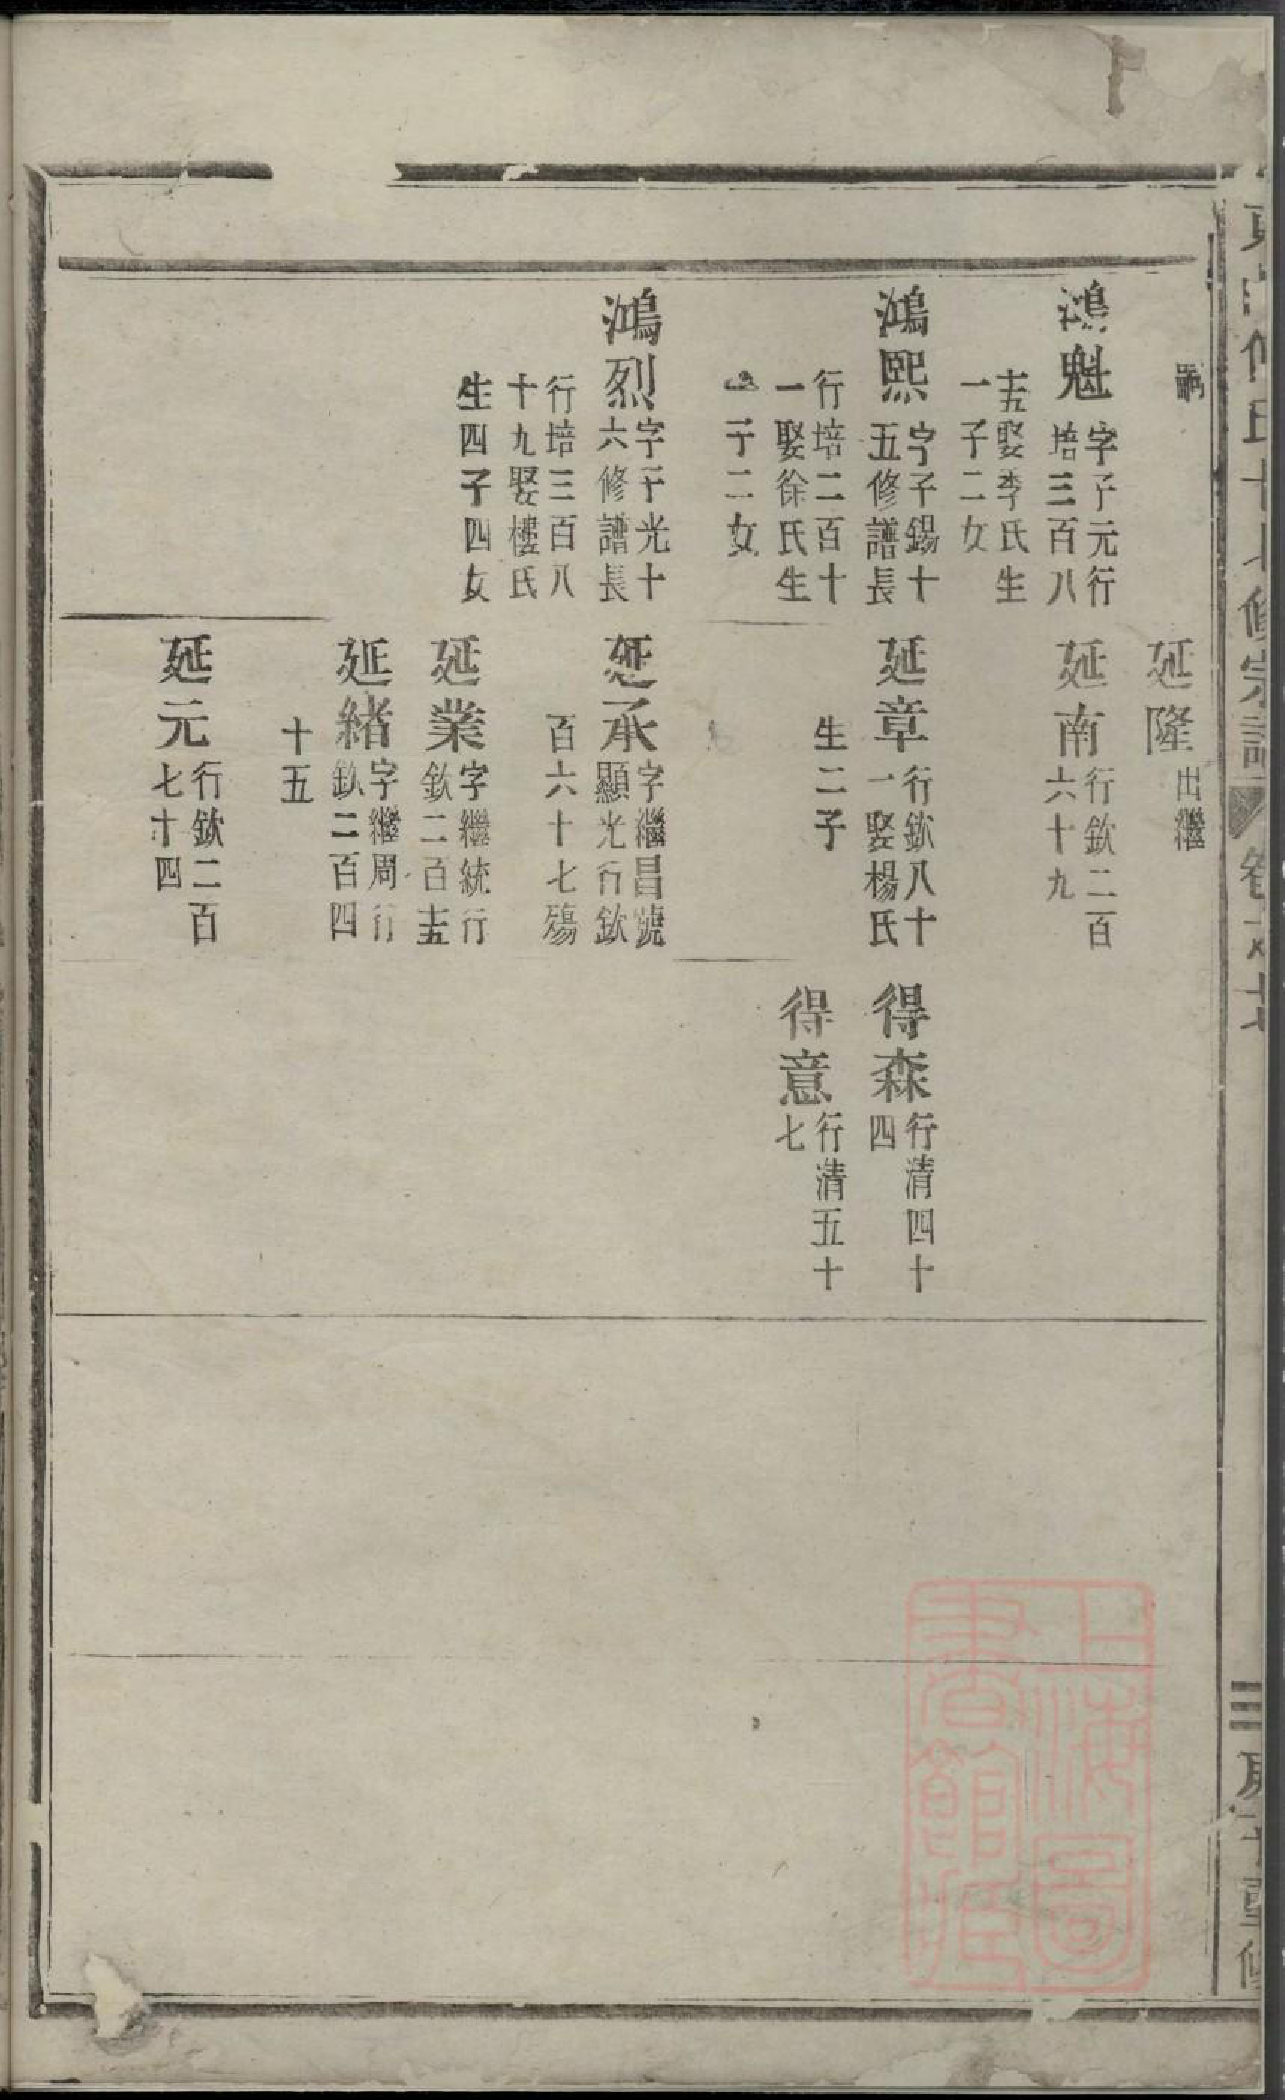 嗣
鴻魁
字子元行
培三百八
十五娶李氏生
一子二女
鴻熙
字子錫十
五修譜長
行培二百十
一娶徐氏生
一子二女
鴻烈
字于光十
六修譜長
行培三百八
十九娶樓氏
生四子四女
延隆
出繼
延南
行欽二百
六十九
延章
行欽八十
一娶楊氏
生二子
延承
字繼昌號
顯光行欽
百六十七殤
延業
字繼統行
欽二百十五
延緒
字繼周行
欽二百四
十五
延元
行欽二百
七十四
得森
行清四十
四
得意
行清五十
七
上海圖
書館藏